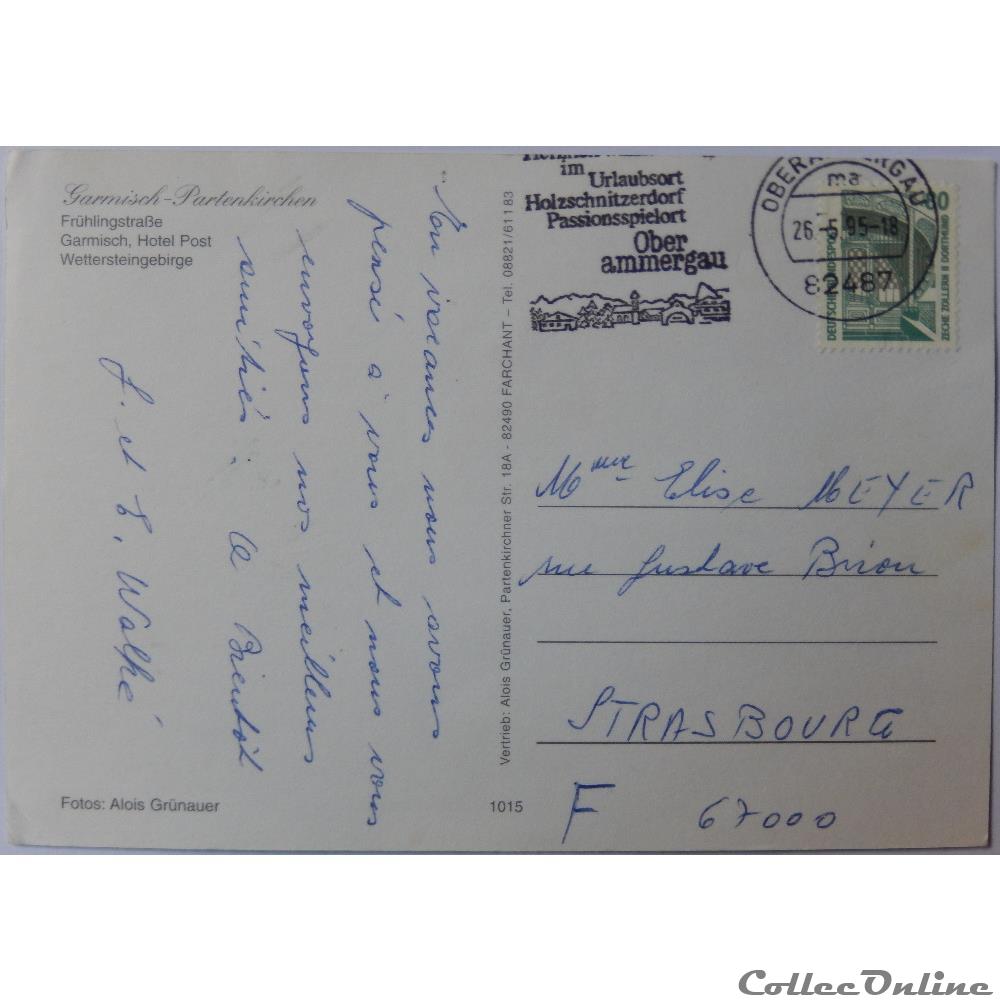 Garmisch-Partenkirchen
Frühlingstraße
Garmisch, Hotel Post
Wettersteingebirge
En vacances nous avons
pensé à vous et nous vous
envoyons nos meilleurs
amitiés. A Bientôt
J. et E. Walhé
Fotos: Alois Grünauer
1015
Vertrieb: Alois Grünauer, Partenkirchner Str. 18A - 82490 FARCHANT – Tel. 08821/61183
im
Urlaubsort
Holzschnitzerdorf
Passionsspielort
Ober
ammergau
OBERAMMERGAU
ma
26.-5.95-18
82487
80
DEUTSCHE BUNDESPOST
ZECHE ZOLLERN II DORTMUND
Mme Elise MEYER
rue Gustave Brion
STRASBOURG
F 67000
CollecOnline